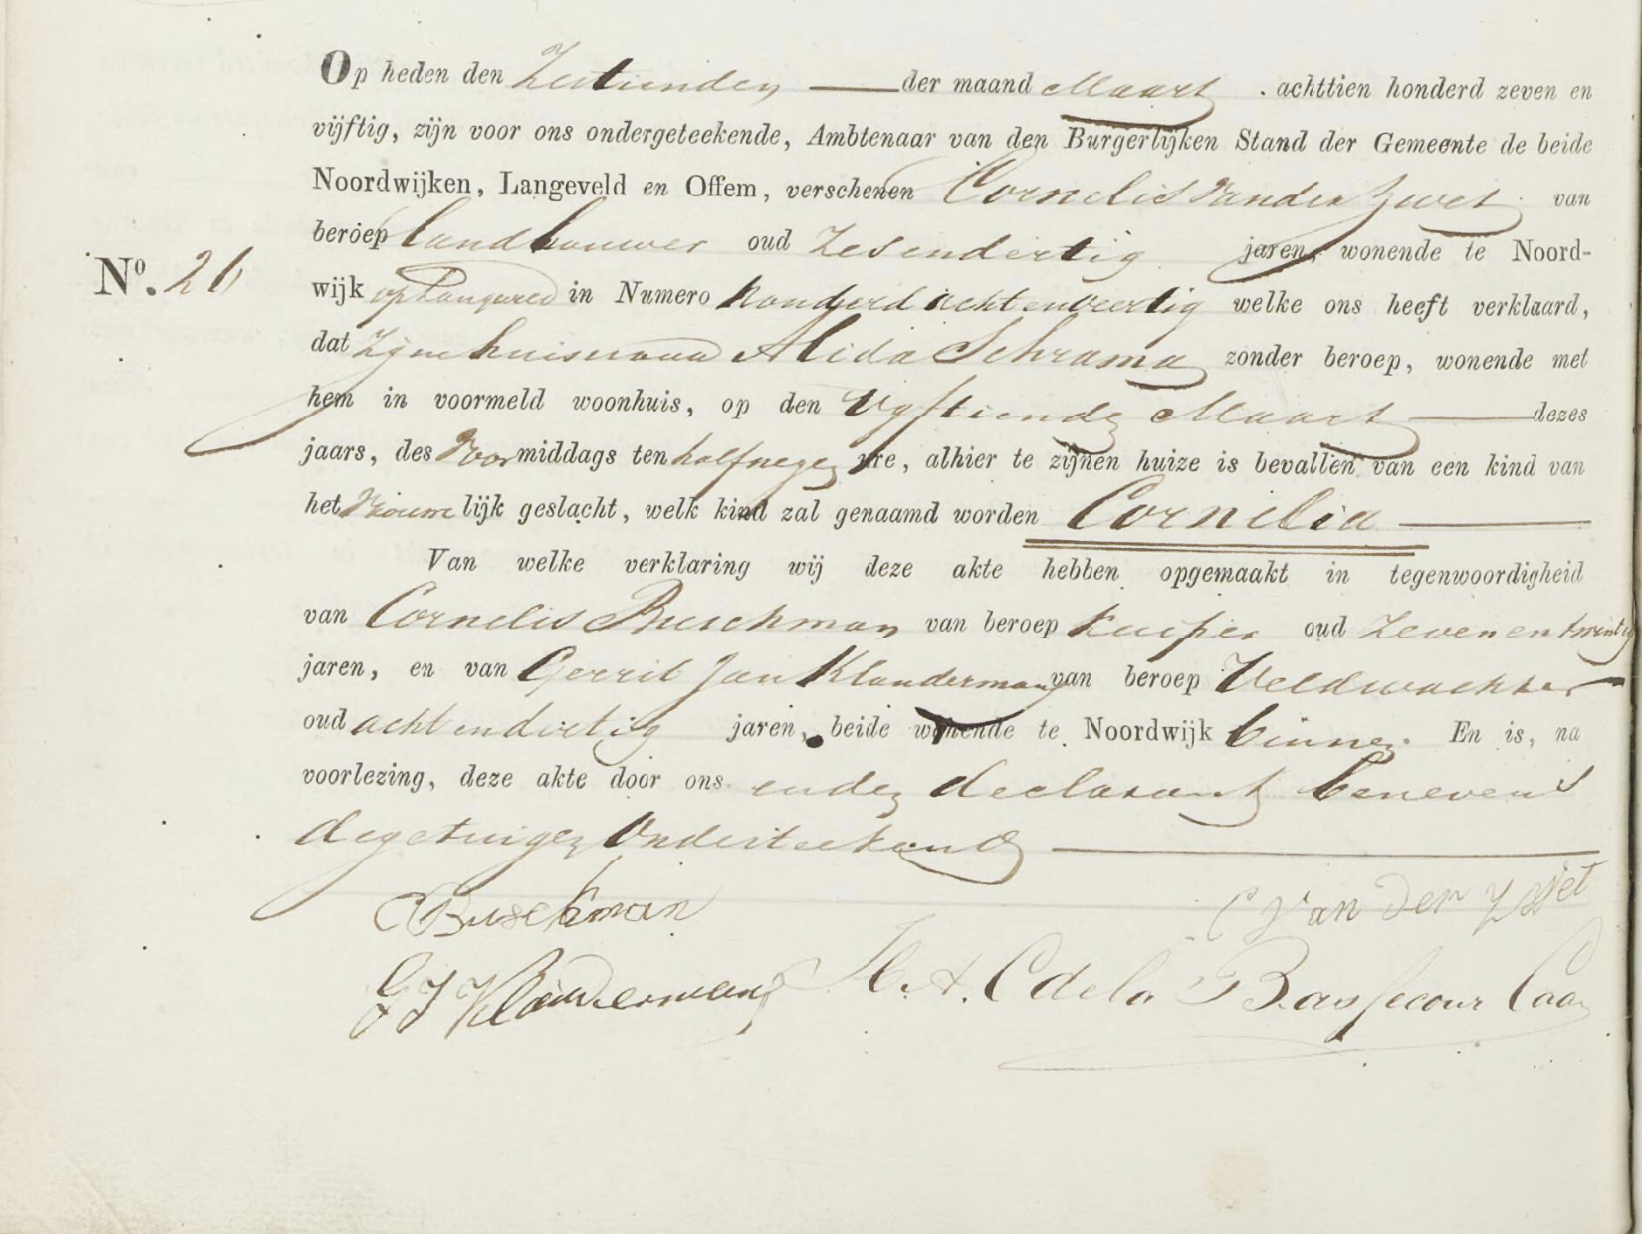 Op heden den Zestienden der maand Maart achttien honderd zeven en
vijftig, zijn voor ons ondergeteekende, Ambtenaar van den Burgerlijken Stand der Gemeente de beide
Noordwijken, Langeveld en Offem, verschenen Cornelis van der Zwet van
beroep landbouwer oud Zesendertig jaren, wonende te Noord-
No. 26
wijk op in Numero honderd achtenveertig welke ons heeft verklaard,
dat Zijne huisvrouw Alida Schrama zonder beroep, wonende met
hem in voormeld woonhuis, op den Vijftiende Maart dezes
jaars, des Voormiddags ten half negen ure, alhier te zijnen huize is bevallen van een kind van
het Vrouwelijk geslacht, welk kind zal genaamd worden Cornelia
Van welke verklaring wij deze akte hebben opgemaakt in tegenwoordigheid
van Cornelis Buschman van beroep Kuiper oud Zeven en twintig
jaren, en van Gerrit Jan Klanderman van beroep Veldwachter
oud acht en dertig jaren, beide wonende te Noordwijk binnen. En is, na
voorlezing, deze akte door ons en den declarant benevens
de getuigen Onderteekend
C Buschman C van der Zwet
G J Klanderman H. A. C de la Bassecour Caan